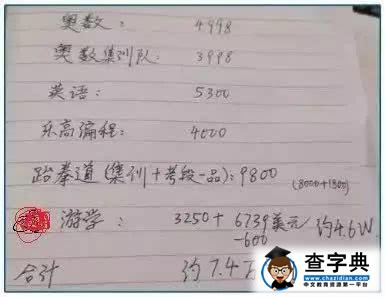 奥数： 4998
奥数集训队： 3998
英语： 5300
乐高编程： 4000
跆拳道（集训+考段一品）：9800
(8000+1800)
游学： 3250+ 6739美元 约4.6W
-600
合计 约7.4
查字典
中文教育资源第一平台